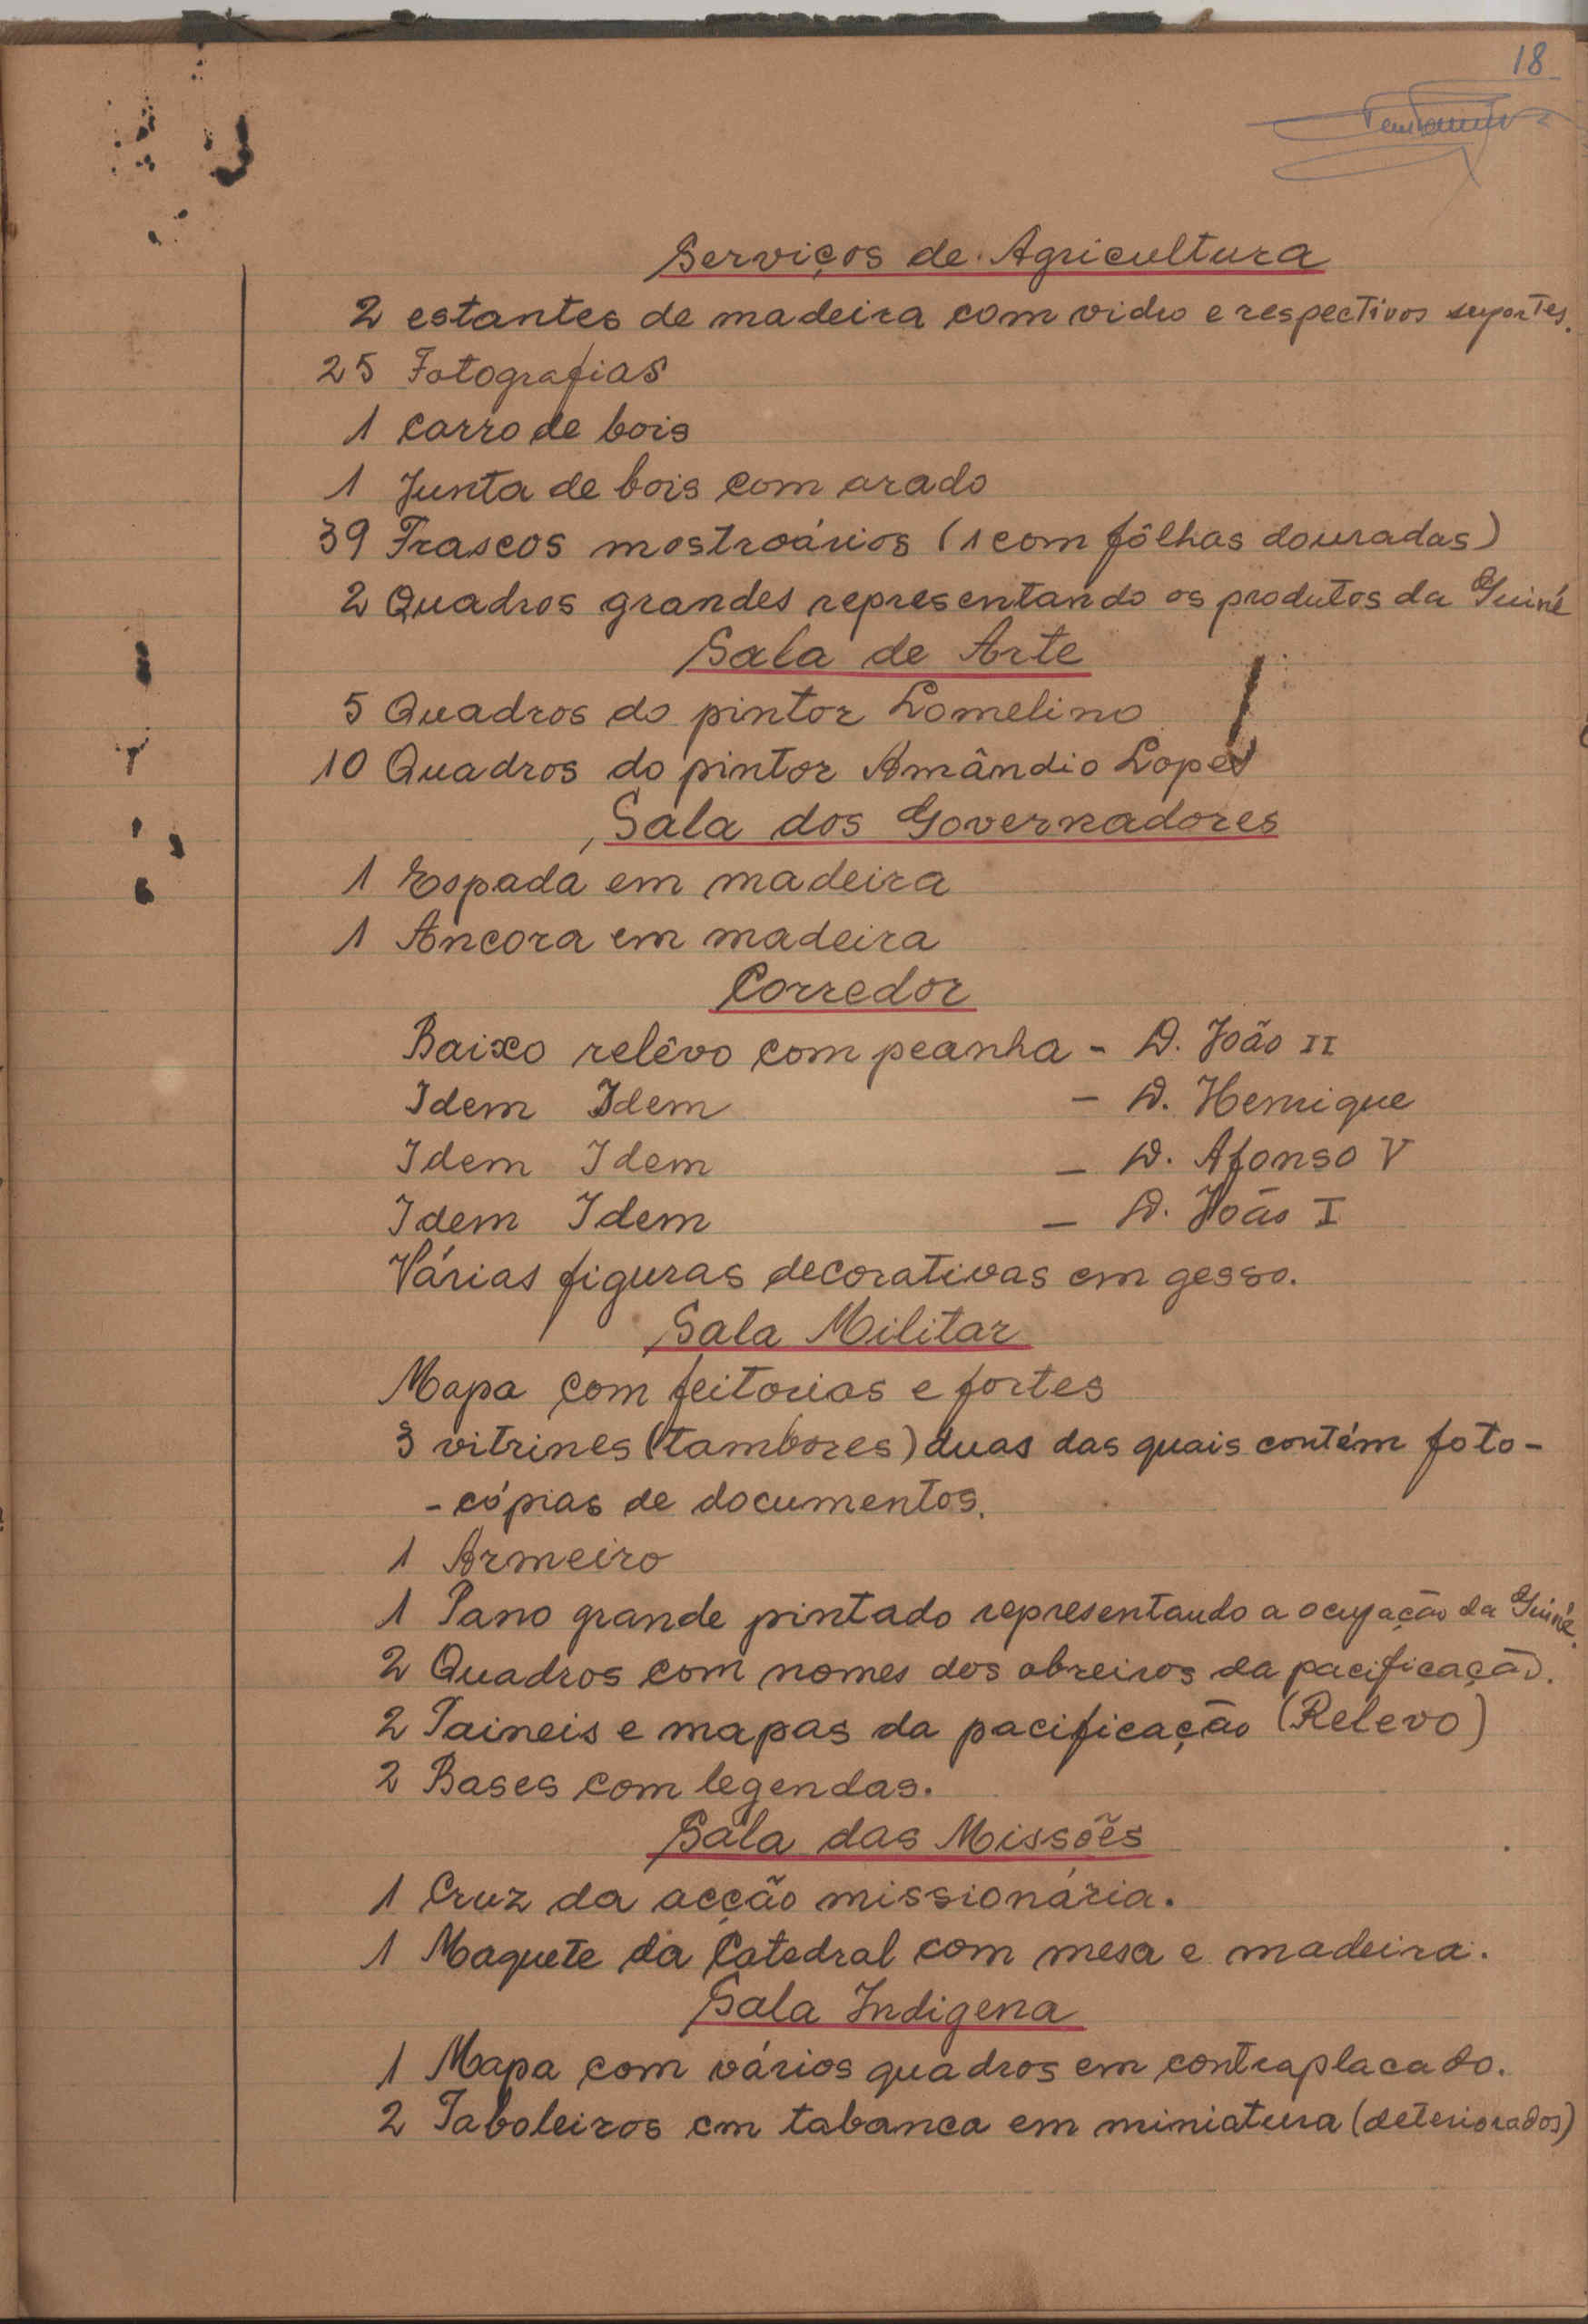 18
Serviços de Agricultura
2 estantes de madeira com vidro e respectivos suportes.
25 Fotografias
1 Carro de bois
1 Junta de bois com arado
39 Frascos mostroários (1 com fôlhas douradas)
2 Quadros grandes representando os produtos da Guiné
Sala de Arte
5 Quadros do pintor Lomelino
10 Quadros do pintor Amândio Lopes
Sala dos Governadores
1 Espada em madeira
1 Ancora em madeira
Corredor
Baixo relêvo com peanha - D. João II
Idem Idem - D. Henrique
Idem Idem - D. Afonso V
Idem Idem - D. João I
Várias figuras decorativas em gesso.
Sala Militar
Mapa com feitorias e fortes
3 vitrines (tambores) duas das quais contém foto-
-cópias de documentos.
1 Armeiro
1 Pano grande pintado representando a ocupação da Guiné.
2 Quadros com nomes dos obreiros da pacificação.
2 Paineis e mapas da pacificação (Relevo)
2 Bases com legendas.
Sala das Missões
1 Cruz da acção missionária.
1 Maquete da Catedral com mesa e madeira.
Sala Indigena
1 Mapa com vários quadros em contraplacado.
2 Taboleiros em tabanca em miniatura (deteriorados)